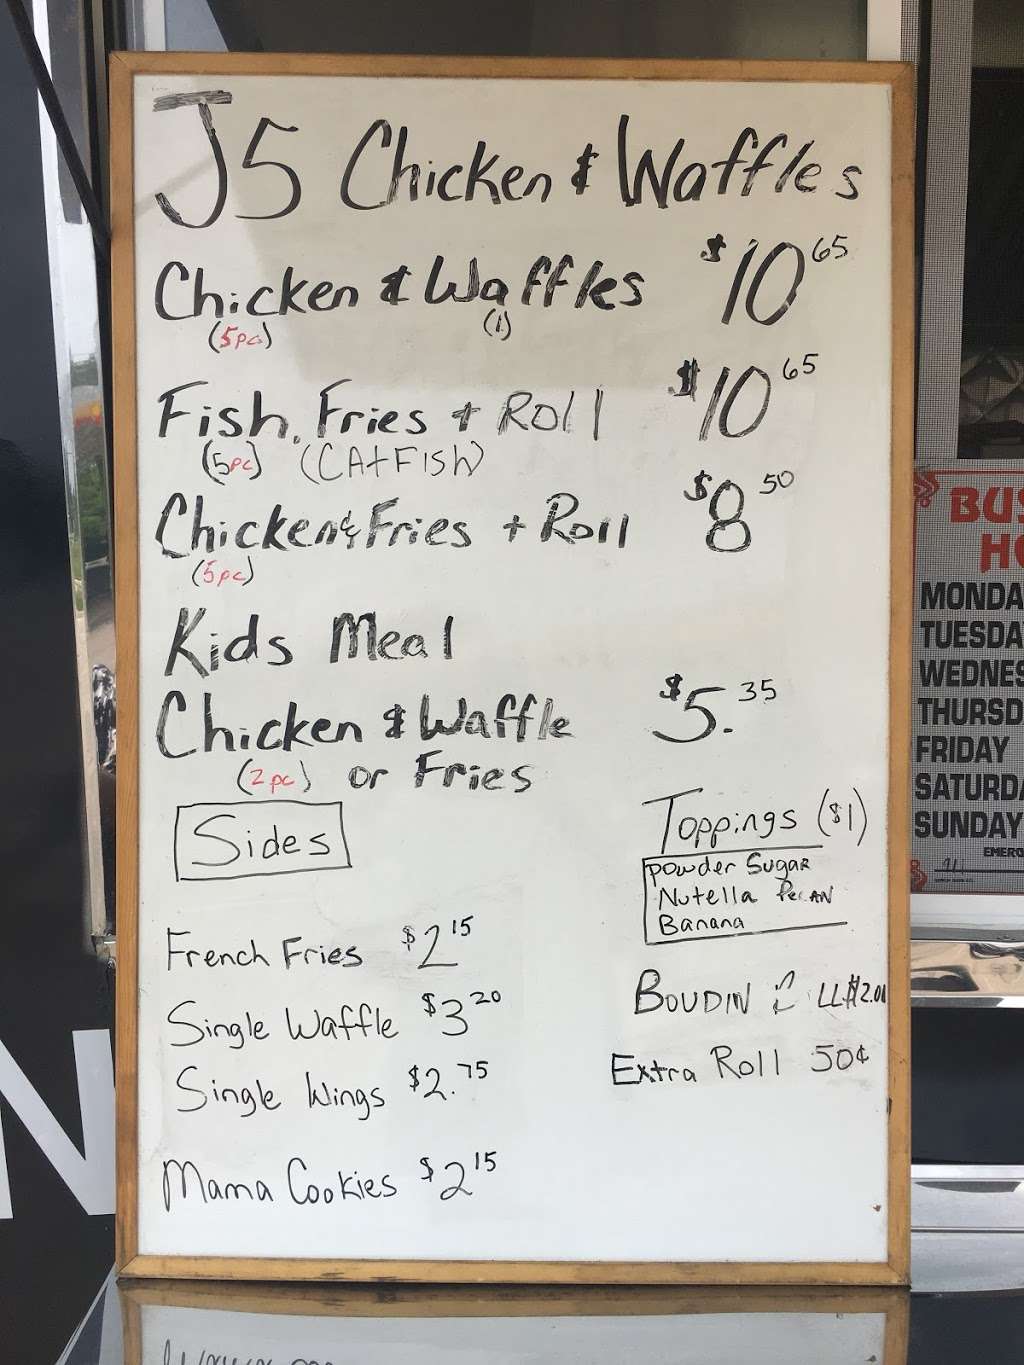 J5 Chicken & Waffles
Chicken & Waffles $10 65
(5pc) (1)
Fish, Fries + Roll $10 65
(5pc) (CAtFISH)
Chicken & Fries + Roll $8 50
(5pc)
Kids Meal
Chicken & Waffle $5.35
(2pc) or Fries
Sides
French Fries $2 15
Single Waffle $3 20
Single Wings $2.75
Mama Cookies $2 15
Toppings ($1)
Powder Sugar
Nutella Pecan
Banana
BOUDIN $2.00
Extra Roll 50¢
BUS
MONDA
TUESDA
WEDNES
THURSD
FRIDAY
SATURDA
SUNDAY
EMERG
N